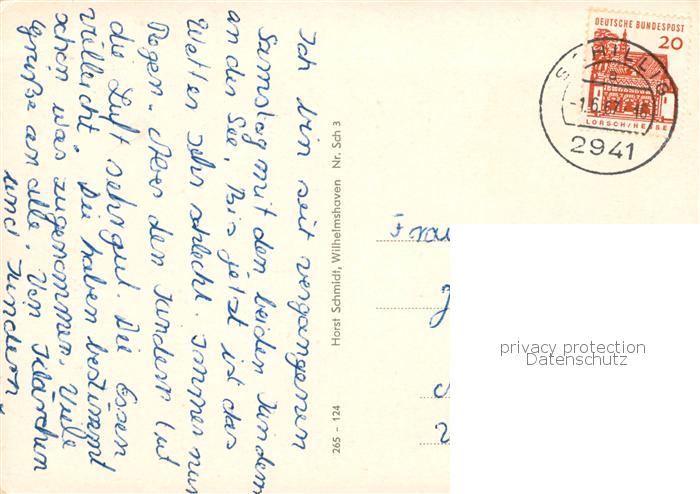 Ich bin seit vergangenen
Samstag mit den beiden Kindern
an der See. Bis jetzt ist das
Wetter sehr schlecht. Immer nur
Regen. Aber den Kindern tut
die Luft sehr gut. Die Essen
vielleicht. Die haben bestimmt
schon was zugenommen. Viele
Grüße an alle. Von Klärchen
und Kindern.
265 - 124 Horst Schmidt, Wilhelmshaven Nr. Sch 3
DEUTSCHE BUNDESPOST
20
LORSCH/HESSEN
SCHILLIG
2941
Frau
privacy protection
Datenschutz